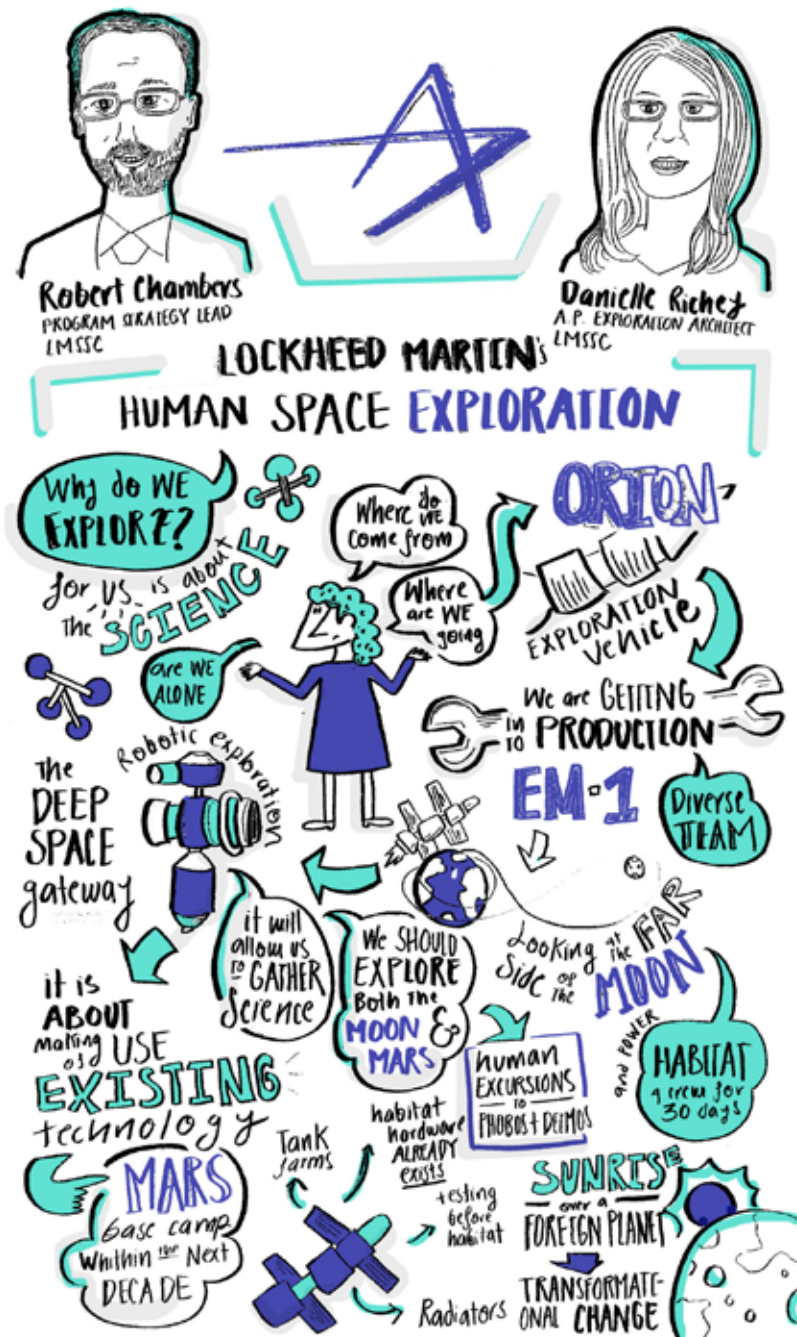 Robert Chambers
PROGRAM STRATEGY LEAD
LMSSC
Danielle Richey
A.P. EXPLORATION ARCHITECT
LMSSC
LOCKHEED MARTIN's
HUMAN SPACE EXPLORATION
Why do WE
EXPLORE?
for US is about
The SCIENCE
Where do
WE
come from
Where
are WE
going
are WE
ALONE
ORION
EXPLORATION
Vehicle
We are GETTING
IN
TO PRODUCTION
EM-1
Diverse
TEAM
Looking at the FAR
Side of the MOON
and POWER
HABITAT
4 crew for
30 days
Robotic exploration
The
DEEP
SPACE
gateway
it will
allow us
to GATHER
Science
We SHOULD
EXPLORE
Both The
MOON &
MARS
human
EXCURSIONS
TO
PHOBOS + DEIMOS
it is
ABOUT
making
of USE
EXISTING
technology
MARS
base camp
Whithin the Next
DECADE
Tank
farms
habitat
hardware
ALREADY
exists
testing
before
habitat
Radiators
SUNRISE
over a
FOREIGN PLANET
TRANSFORMATE-
ONAL CHANGE